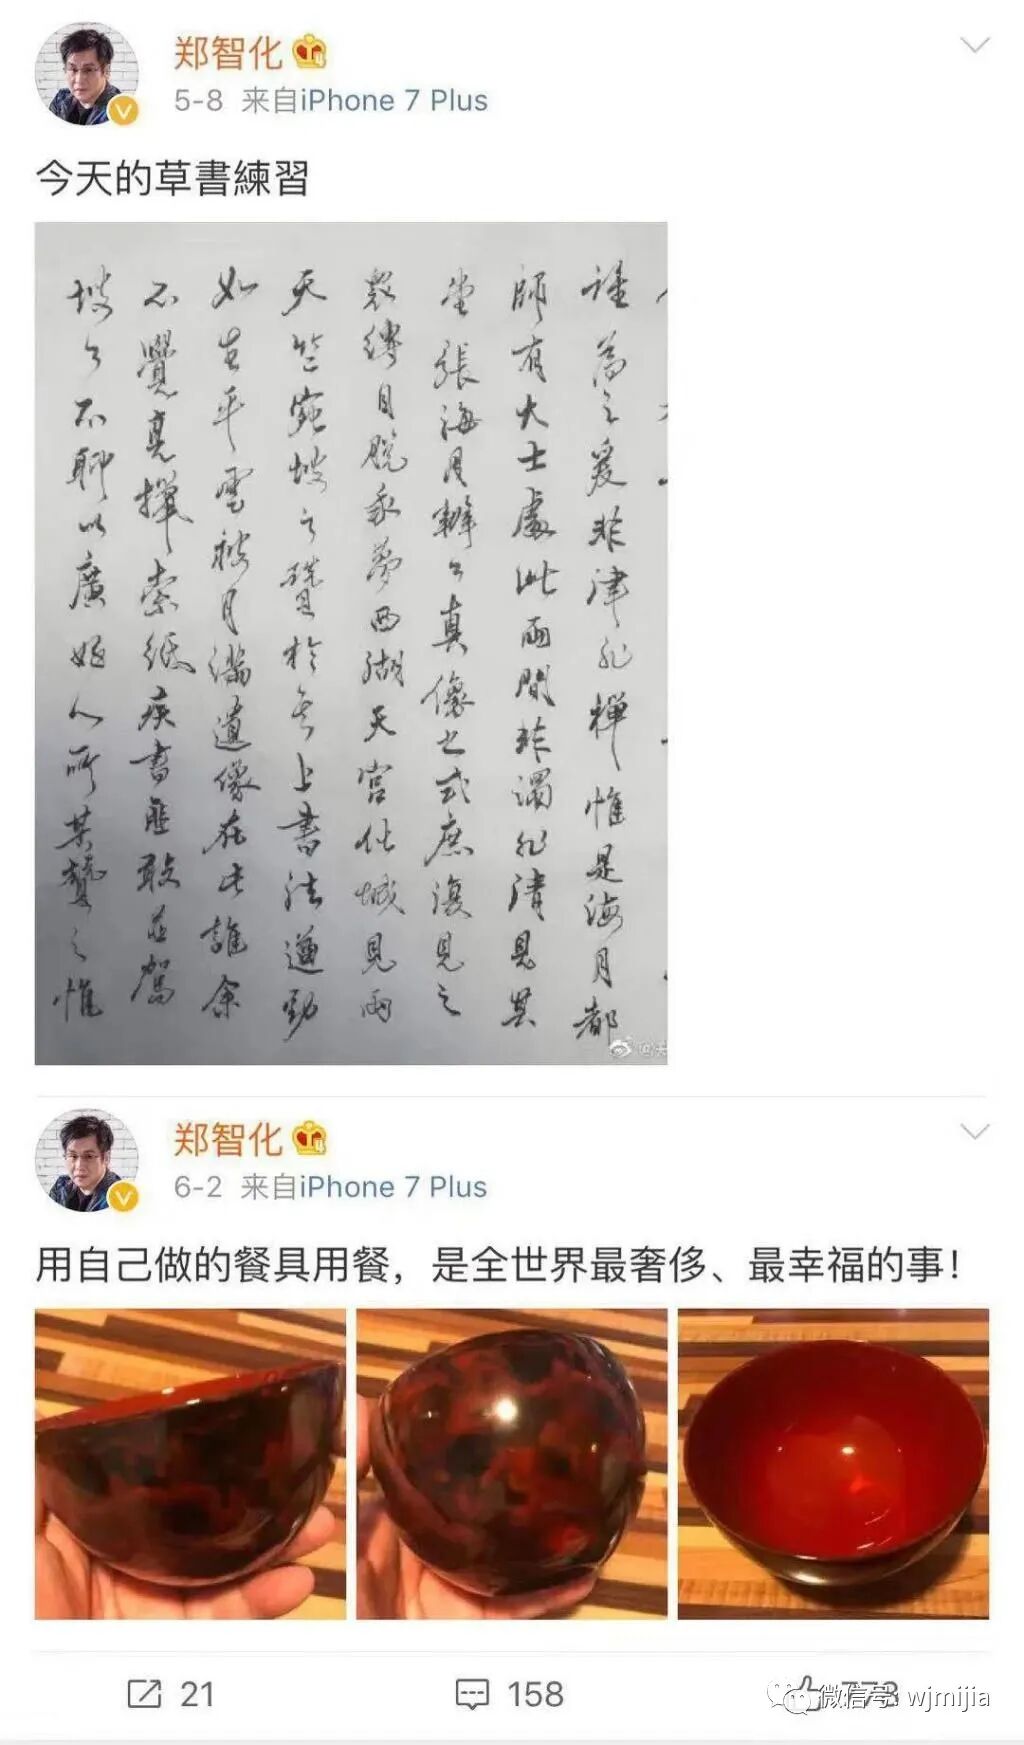 郑智化
5-8 来自iPhone 7 Plus
今天的草書練習
誰為之爰非律非禪惟是海月都
師有大士處此兩間非濁非清見其
張海月辯公真像之式庶復見之
衆縛自脫我夢西湖天宮化城見兩
天竺宛坡之贊於上書法遒勁
如生平雲披月滿遺像在此誰余
不覺索紙疾書匪敢並駕
坡公不聊以廣人所其贊之惟
郑智化
6-2 来自iPhone 7 Plus
用自己做的餐具用餐，是全世界最奢侈、最幸福的事！
21
158
773
微信号: wjmijia